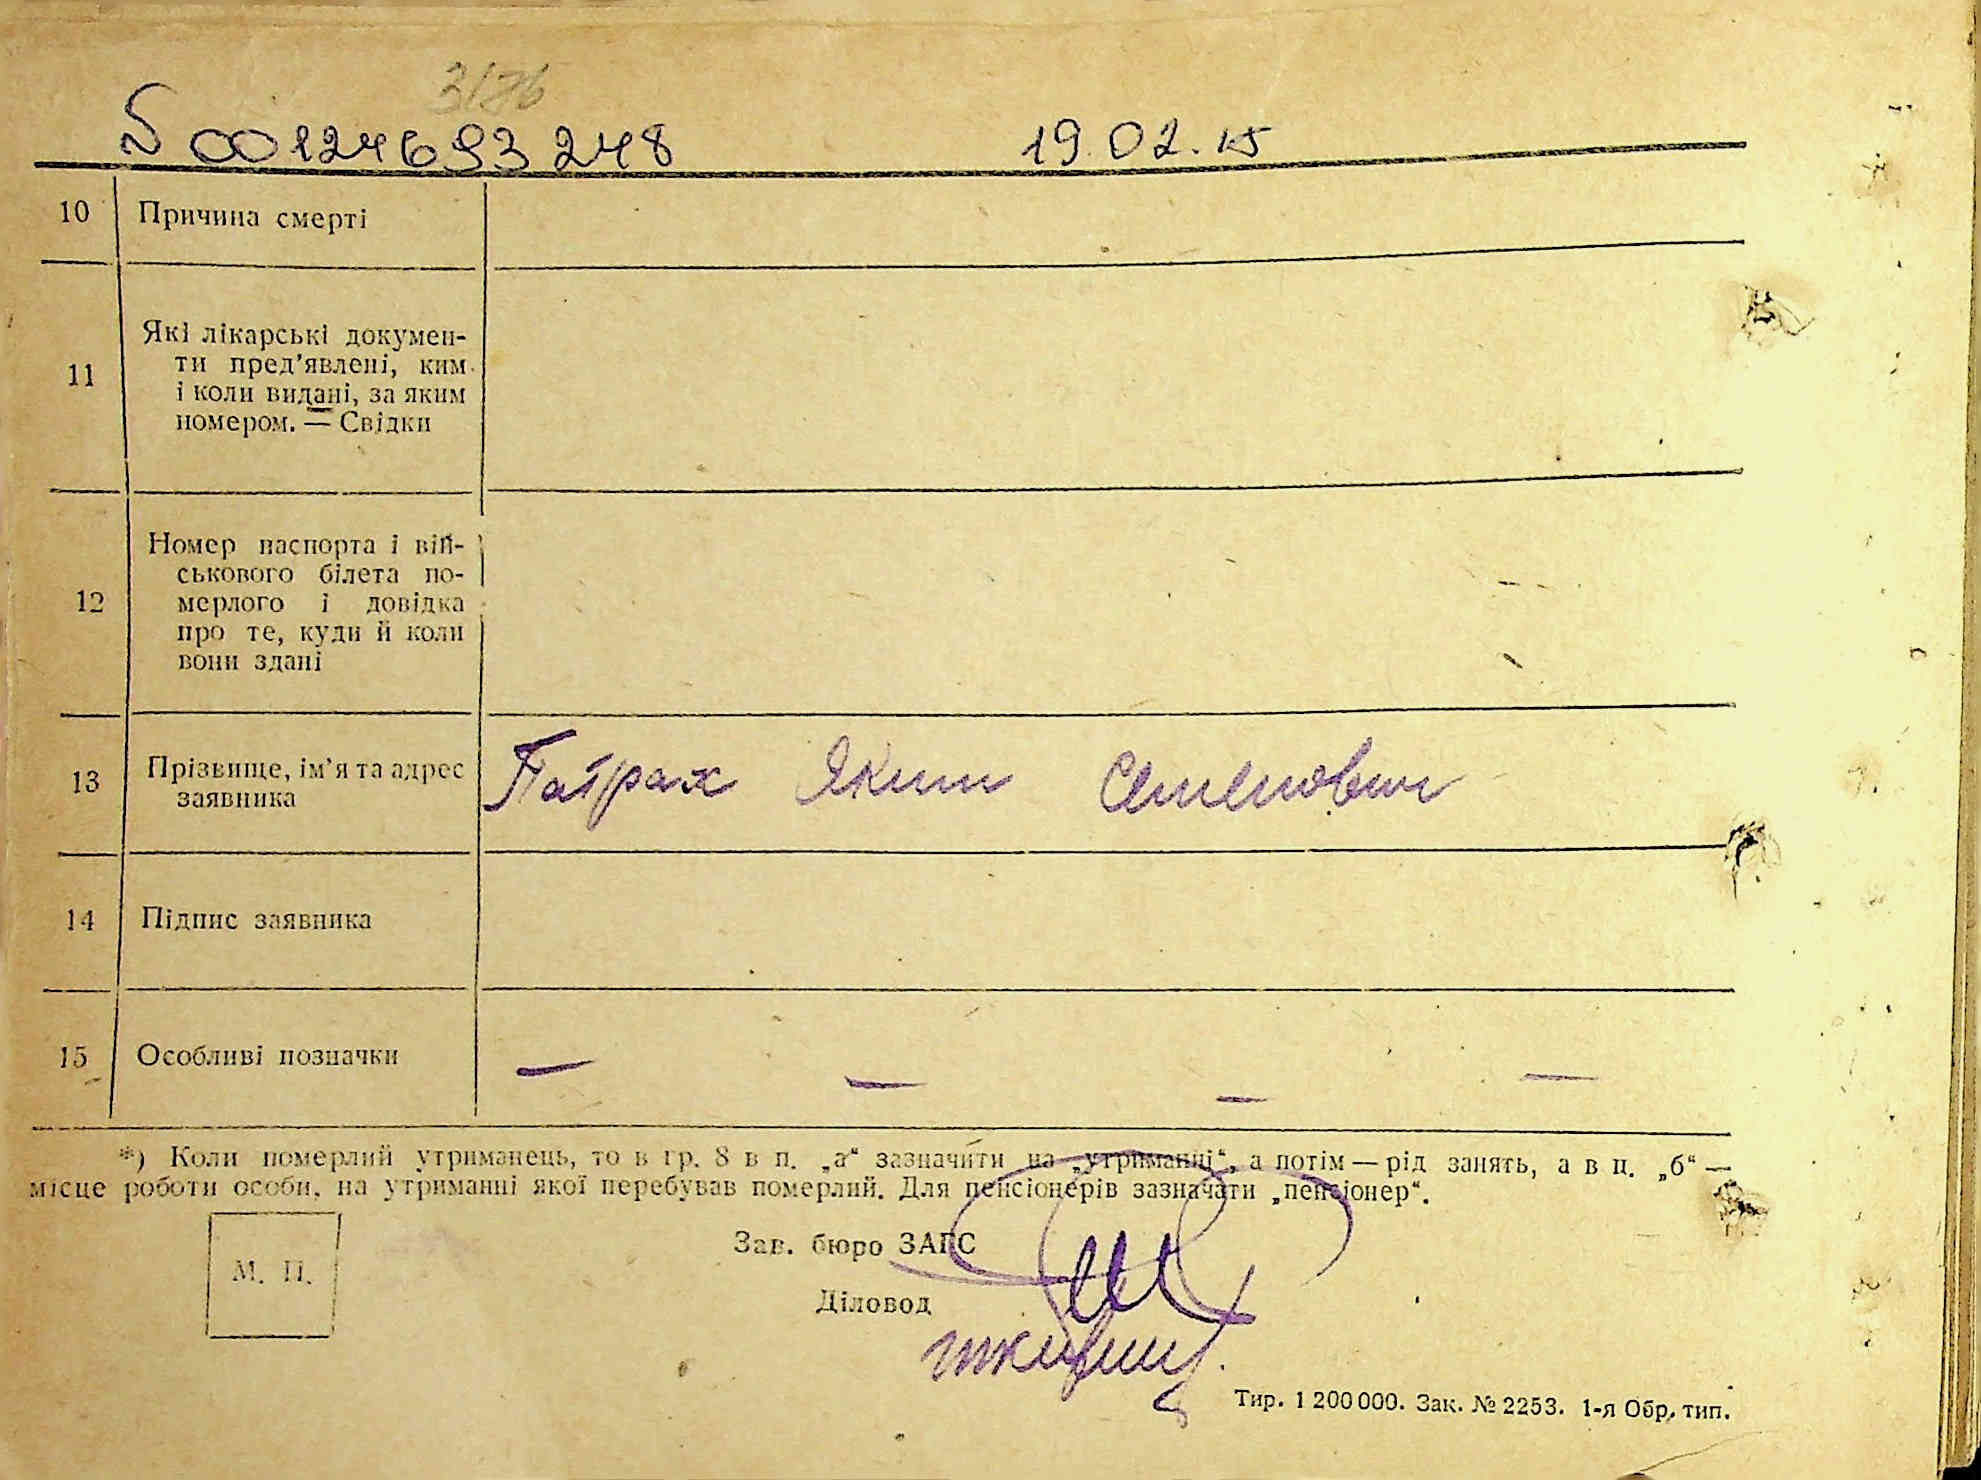 3176
N 00124693248 19.02.15
10 Причина смерті
11 Які лікарські докумен-
ти пред’явлені, ким
і коли видані, за яким
номером. — Свідки
12 Номер паспорта і вій-
ськового білета по-
мерлого і довідка
про те, куди й коли
вони здані
13 Прізвище, ім’я та адрес
заявника
Патрах Яким Семенович
14 Підпис заявника
15 Особливі позначки — — — —
*) Коли померлий утриманець, то в гр. 8 в п. „а“ зазначити на „утриманні“, а потім — рід занять, а в п. „б“ —
місце роботи особи, на утриманні якої перебував померлий. Для пенсіонерів зазначати „пенсіонер“.
М. П.
Зав. бюро ЗАГС
Діловод
Тир. 1 200 000. Зак. № 2253. 1-я Обр. тип.